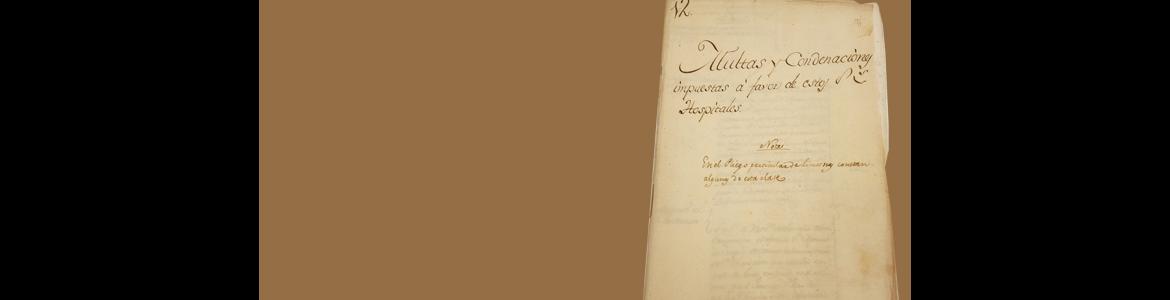 12.
Multas y Condenaciones
impuestas à favor de estos R.s
Hospitales.
Nota
En el Pliego particular de limosnas constan
algunas de esta clase